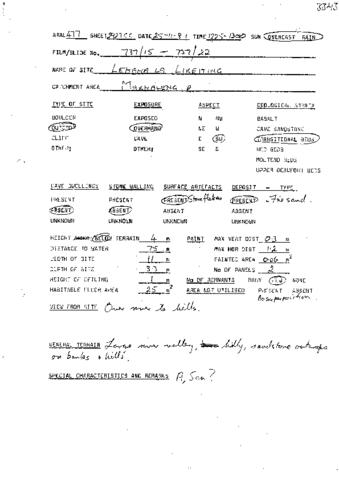 3343
ARAL 477 SHEET 2927CC DATE 25-11-81 TIME 1225-1300 SUN OVERCAST RAIN
FILM/SLIDE No. 737/15 - 737/22
NAME OF SITE
CATCHMENT AREA R.
TYPE OF SITE EXPOSURE ASPECT GEOLOGICAL STRATA
BOULDER EXPOSED N NW BASALT
OVERHANG NE W CAVE SANDSTONE
CLIFF CAVE E SW TRANSITIONAL BEDS
OTHER: OTHER: SE S RED BEDS
MOLTENO BEDS
UPPER BEAUFORT BEDS
CAVE DWELLINGS STONE WALLING SURFACE ARTEFACTS DEPOSIT - TYPE
PRESENT PRESENT PRESENT Stone flakes PRESENT - Fine sand.
ABSENT ABSENT ABSENT ABSENT
UNKNOWN UNKNOWN UNKNOWN UNKNOWN
HEIGHT TERRAIN 4 m PAINT MAX VERT DIST 0.3 m
DISTANCE TO WATER 75 m MAX HOR DIST 1.2 m
WIDTH OF SITE 11 m PAINTED AREA 0.06 m²
DEPTH OF SITE 3.3 m No OF PANELS 2
HEIGHT OF CEILING 1 m No OF REMNANTS MANY FEW NONE
HABITABLE FLOOR AREA 25 m² AREA NOT UTILISED PRESENT ABSENT
VIEW FROM SITE Over river to hills.
GENERAL TERRAIN Large river valley, hilly, sandstone outcrops
on banks & hills.
SPECIAL CHARACTERISTICS AND REMARKS